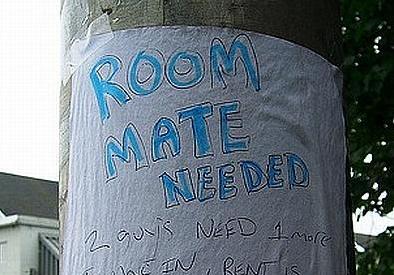 ROOM
MATE
NEEDED
2 guy's NEED 1 more
IN, RENT IS